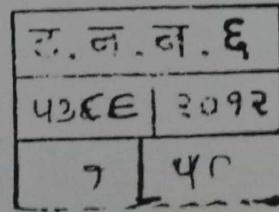 ट. न. न. ६
५३६६ | २०१२
१ | ५८